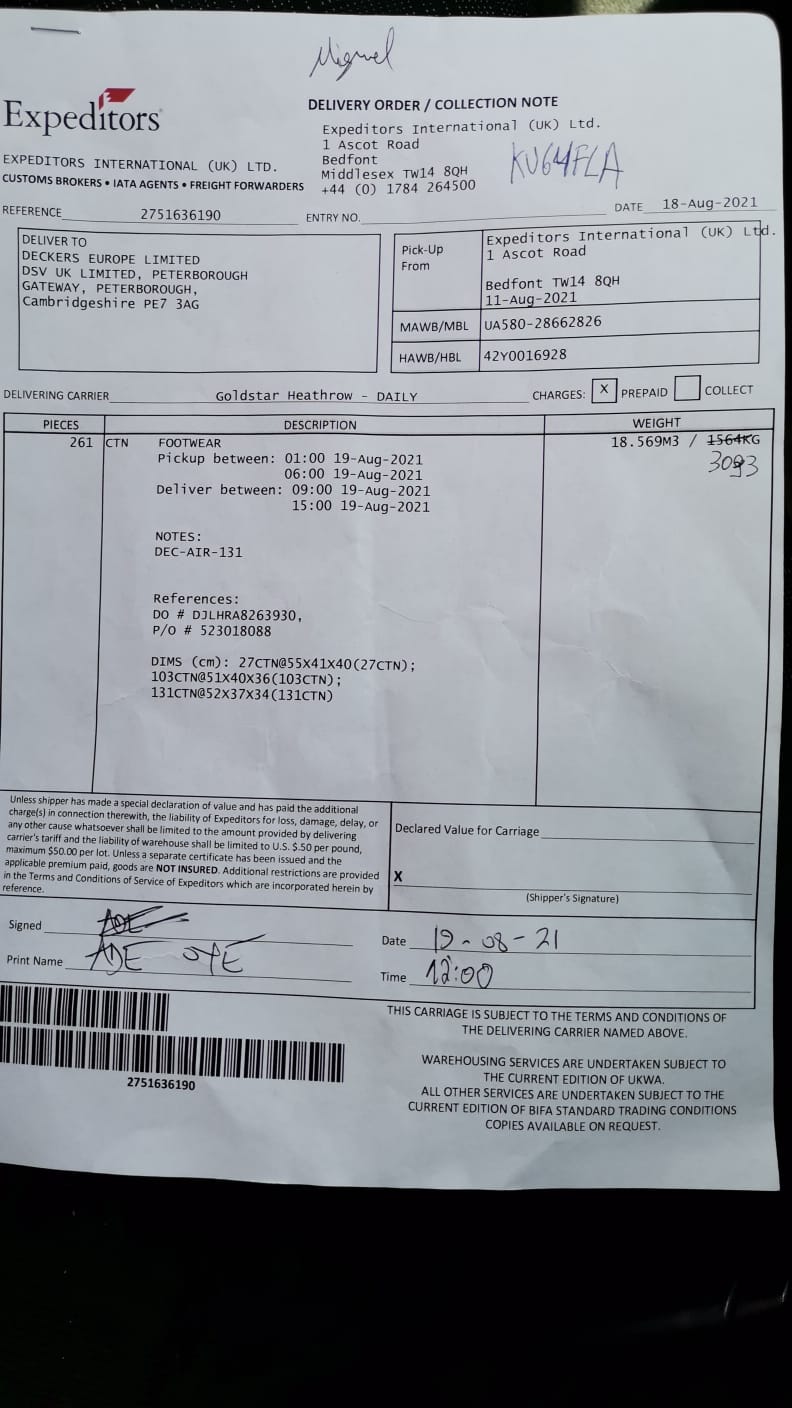 Miguel
Expeditors
EXPEDITORS INTERNATIONAL (UK) LTD.
CUSTOMS BROKERS • IATA AGENTS • FREIGHT FORWARDERS
DELIVERY ORDER / COLLECTION NOTE
Expeditors International (UK) Ltd.
1 Ascot Road
Bedfont
Middlesex TW14 8QH
+44 (0) 1784 264500
KU64FLA
REFERENCE 2751636190
ENTRY NO.
DATE 18-Aug-2021
DELIVER TO
DECKERS EUROPE LIMITED
DSV UK LIMITED, PETERBOROUGH
GATEWAY, PETERBOROUGH,
Cambridgeshire PE7 3AG
Pick-Up
From
Expeditors International (UK) Ltd.
1 Ascot Road
Bedfont TW14 8QH
11-Aug-2021
MAWB/MBL UA580-28662826
HAWB/HBL 42Y0016928
DELIVERING CARRIER Goldstar Heathrow - DAILY
CHARGES: X PREPAID COLLECT
PIECES DESCRIPTION WEIGHT
261 CTN FOOTWEAR 18.569M3 / 1564KG
3093
Pickup between: 01:00 19-Aug-2021
06:00 19-Aug-2021
Deliver between: 09:00 19-Aug-2021
15:00 19-Aug-2021
NOTES:
DEC-AIR-131
References:
DO # DJLHRA8263930,
P/O # 523018088
DIMS (cm): 27CTN@55X41X40(27CTN);
103CTN@51X40X36(103CTN);
131CTN@52X37X34(131CTN)
Unless shipper has made a special declaration of value and has paid the additional
charge(s) in connection therewith, the liability of Expeditors for loss, damage, delay, or
any other cause whatsoever shall be limited to the amount provided by delivering
carrier's tariff and the liability of warehouse shall be limited to U.S. $.50 per pound,
maximum $50.00 per lot. Unless a separate certificate has been issued and the
applicable premium paid, goods are NOT INSURED. Additional restrictions are provided
in the Terms and Conditions of Service of Expeditors which are incorporated herein by
reference.
Declared Value for Carriage
X
(Shipper's Signature)
Signed ADE
Print Name ADE OYE
Date 19-08-21
Time 12:00
2751636190
THIS CARRIAGE IS SUBJECT TO THE TERMS AND CONDITIONS OF
THE DELIVERING CARRIER NAMED ABOVE.
WAREHOUSING SERVICES ARE UNDERTAKEN SUBJECT TO
THE CURRENT EDITION OF UKWA.
ALL OTHER SERVICES ARE UNDERTAKEN SUBJECT TO THE
CURRENT EDITION OF BIFA STANDARD TRADING CONDITIONS
COPIES AVAILABLE ON REQUEST.